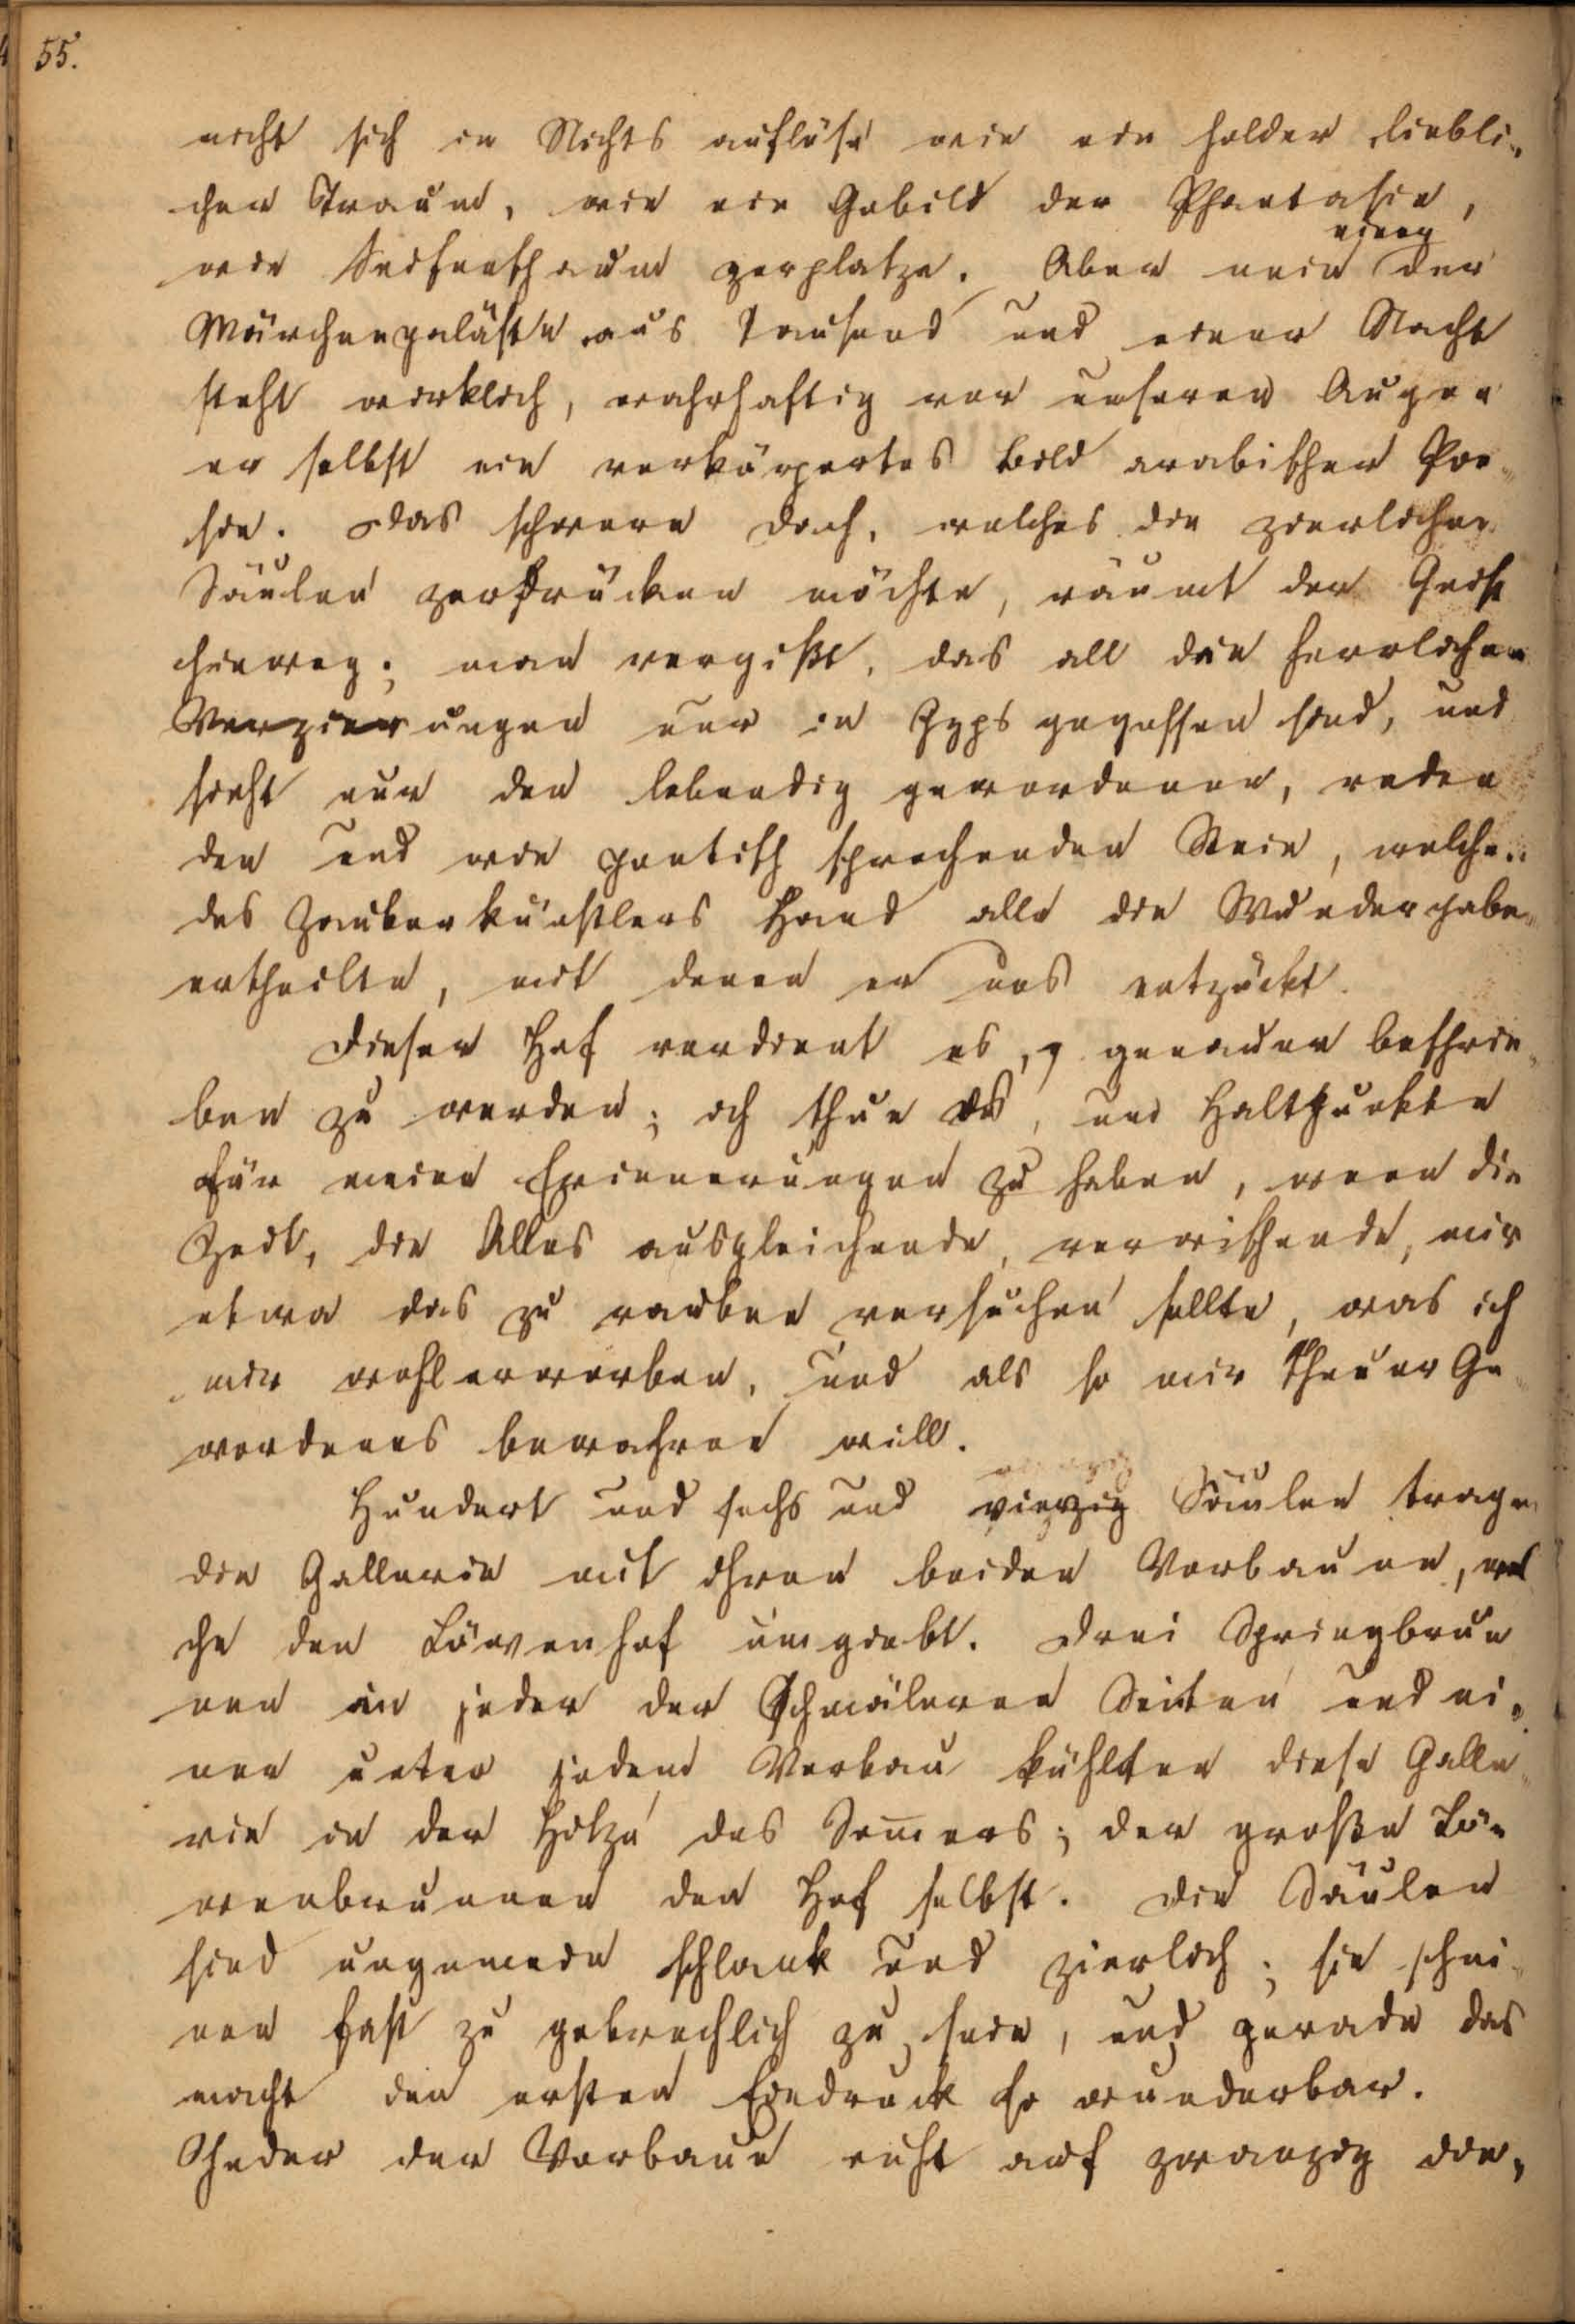 55.
nicht sich in Nichts auflöse wie ein holder liebli-
cher Traum, wie ein Gebild der Phantasie,
wie Seifenschaum zerplatze. Aber nein einer der
Märchenpaläste aus Tausend und einer Nacht
steht wirklich, wahrhaftig vor unseren Augen
er selbst ein verkörpertes Bild arabischer Poe-
sie. Das schwere Dach, welches die zierlichen
Säulen zerdrücken möchte, räumt der Geist
hinweg; man vergißt, das all die herrlichen
Verzierungen nur in Gyps gegossen sind, und
sieht nur den lebendig gewordenen, reden
den und wie poetisch sprechenden Stein, welchen
des Zauberkünstlers Hand alle die Wundergaben
ertheilte, mit denen er uns entzückt.
Dieser Hof verdient es, genauer beschrie-
ben zu werden; ich thue es, um Haltpunkte
für meine Erinnerungen zu haben, wenn die
Zeit, die Alles ausgleichende, verwischende, mir
etwa das zu rauben versuchen sollte, was ich
mir wohl erworben, und als so mir theuer Ge-
wordenes bewahren will.
Hundert und sechs und vierzig Säulen tragen
die Gallerie mit ihren beiden Vorbauen, wel
che den Löwenhof umgiebt. Drei Springbrun
nen in jeder der schmäleren Seiten und ei-
nen unter jedem Vorbau kühlten diese Galle-
rie in der Hitze des Sommers; der große Lö-
wenbrunnen den Hof selbst. Die Säulen
sind ungemein schlank und zierlich; sie schei-
nen fast zu gebrechlich zu sein, und gerade das
macht den ersten Eindruck so wunderbar.
Jeder der Vorbaue ruht auf zwanzig die-